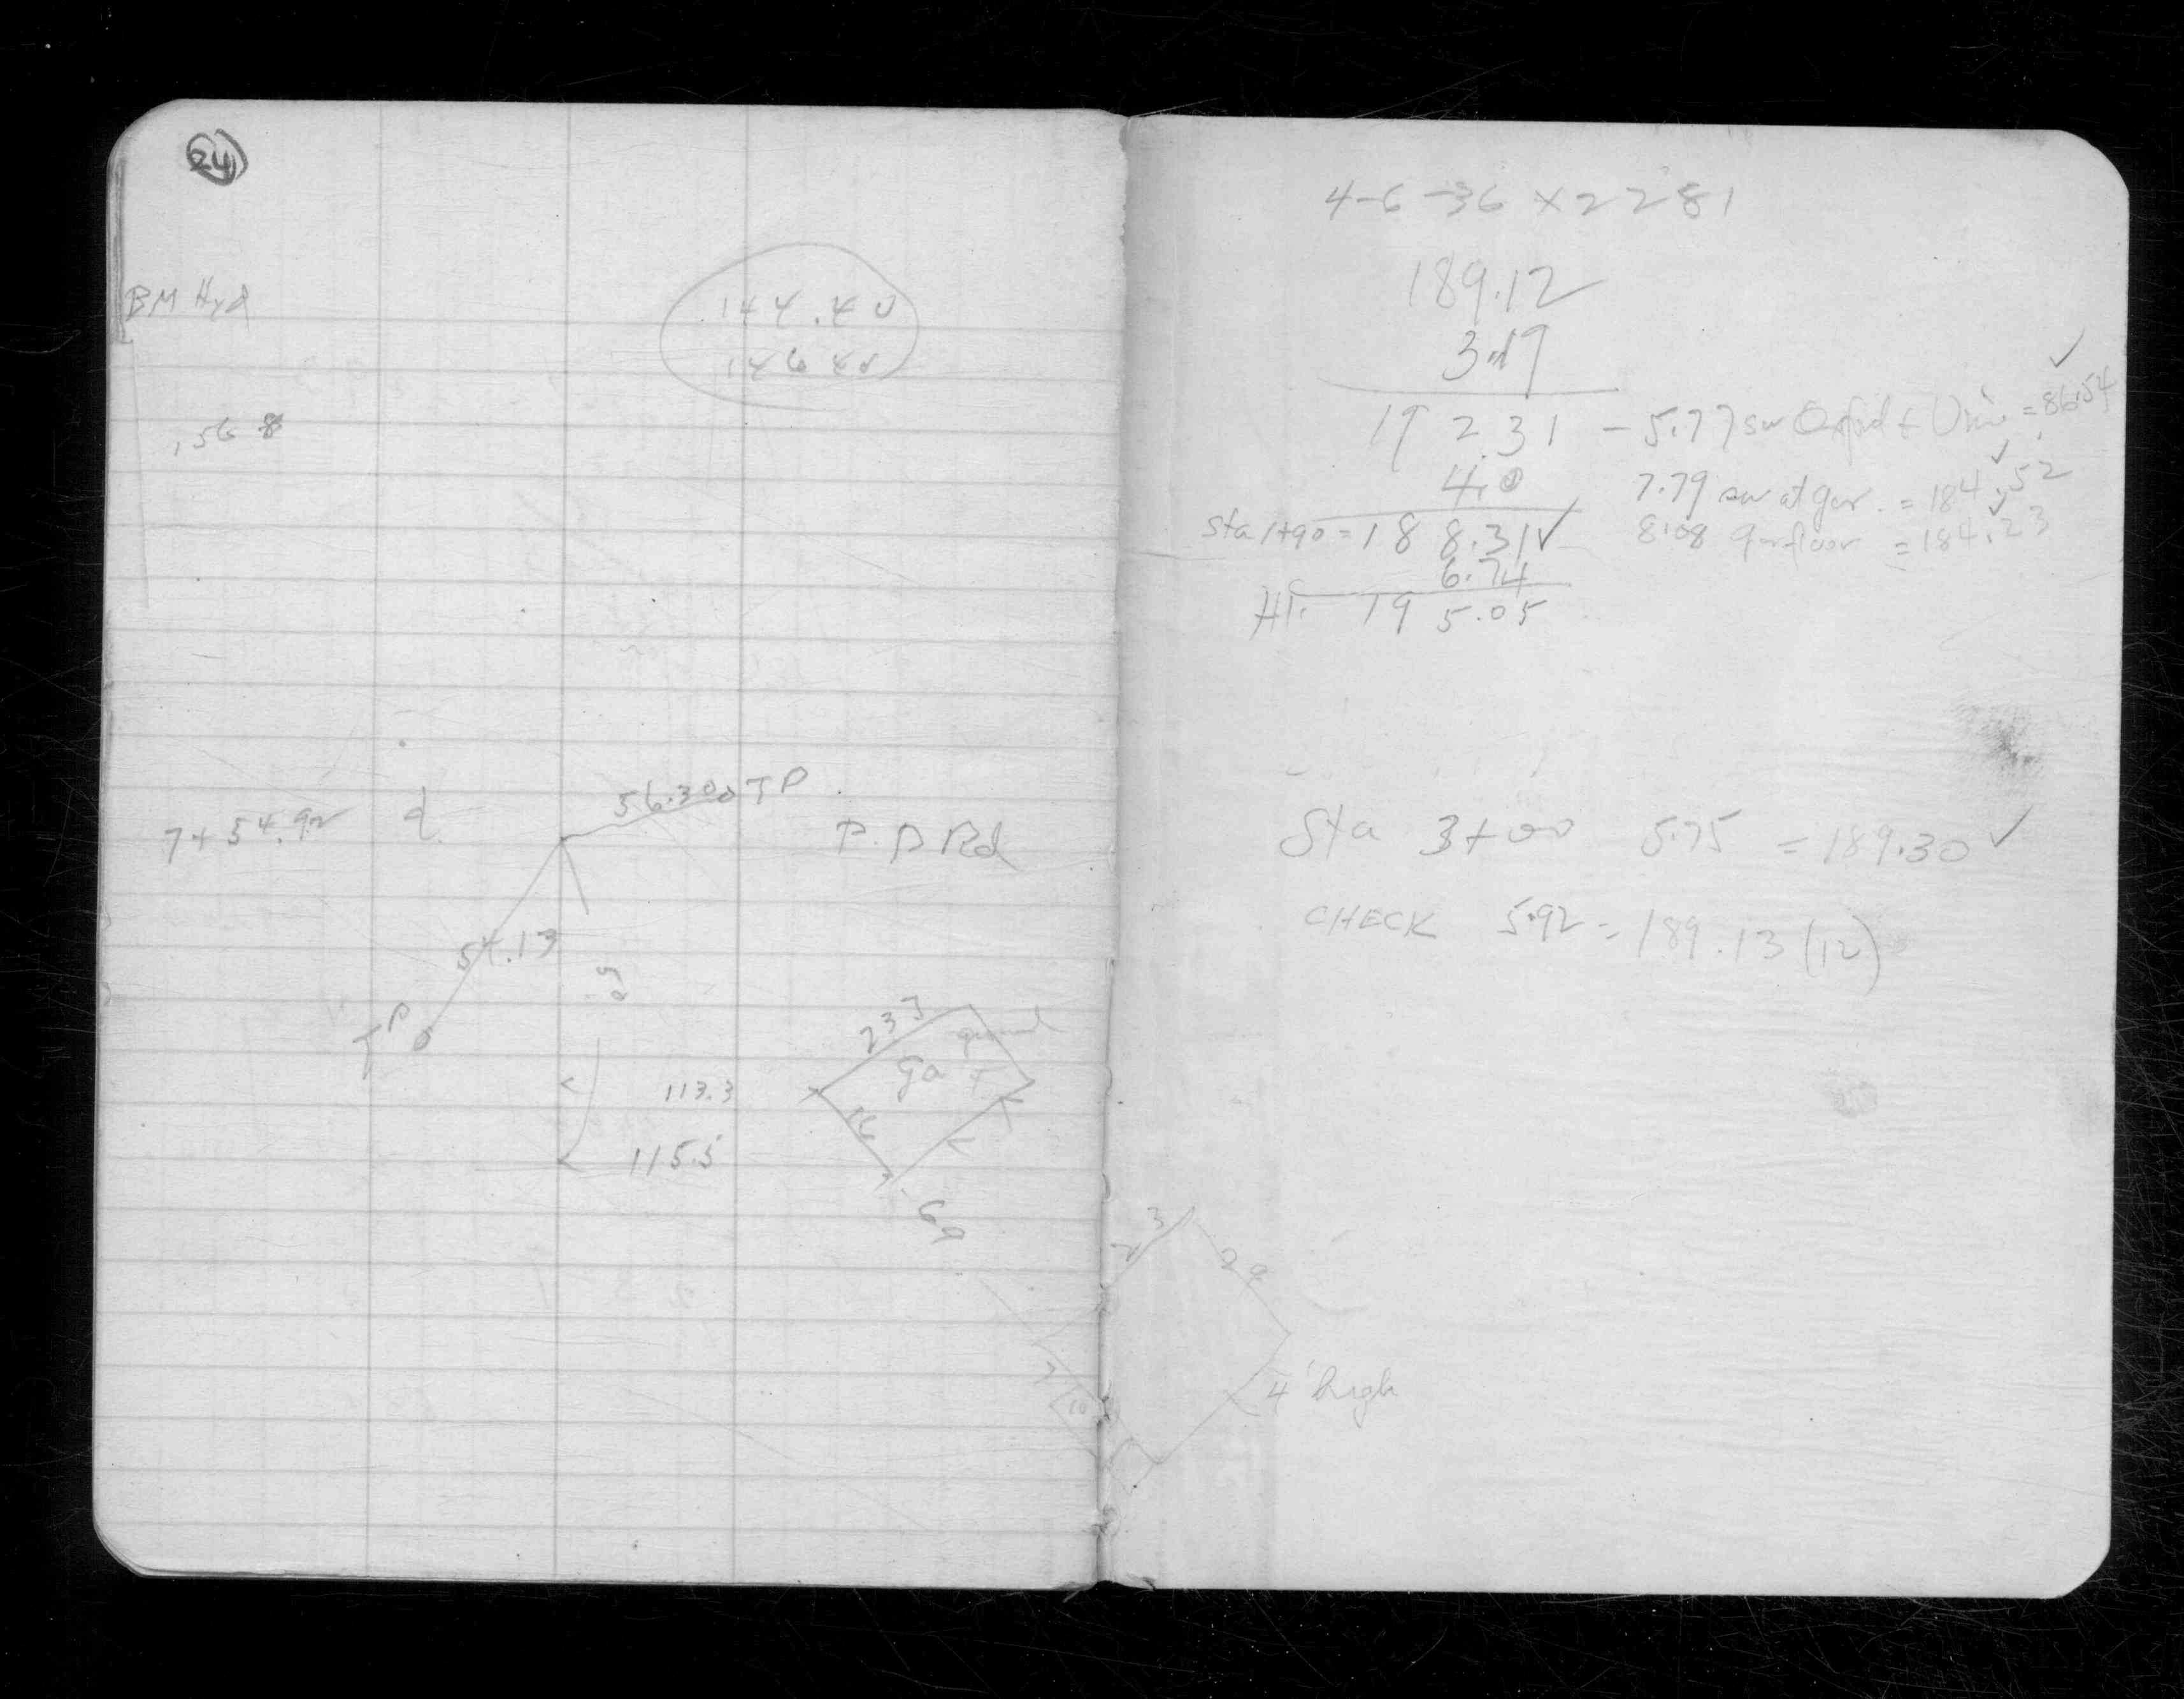 24
BM Hyd
144.40
146.40
.568
56.30 TP
7+54.92
P.D Rd
54.13
TP
113.3
115.5
233
ga
16
Ga
4-6-36 X2281
189.12
3.19
192.31 - 5.77 sw Oxford + Univ. = 86.54 ✓
4.0 7.79 sw at gar. = 184.52 ✓
Sta 1+90 = 188.31 ✓ 8.08 gar floor = 184.23 ✓
6.74
HI. 195.05
Sta 3+00 5.75 = 189.30 ✓
CHECK 5.92 = 189.13 (12)
3
29
7
10
4' high